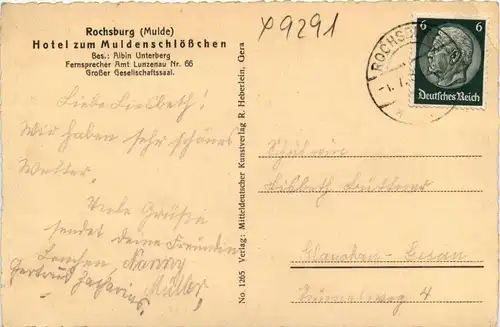 Rochsburg (Mulde)
Hotel zum Muldenschlößchen
Bes.: Albin Unterberg
Fernsprecher Amt Lunzenau Nr. 66
Großer Gesellschaftssaal.
P9291
ROCHSB
6 6
Deutsches Reich
Liebe Liesbeth!
Wir haben sehr schönes
Wetter.
Viele Grüße
sendet deine Freundin
Lenchen, Nanny
Gertraud Zacharias Müller
No. 1265 Verlag: Mitteldeutscher Kunstverlag R. Heberlein, Gera
Schülerin
Lisbeth
Glauchau-Gesau
4